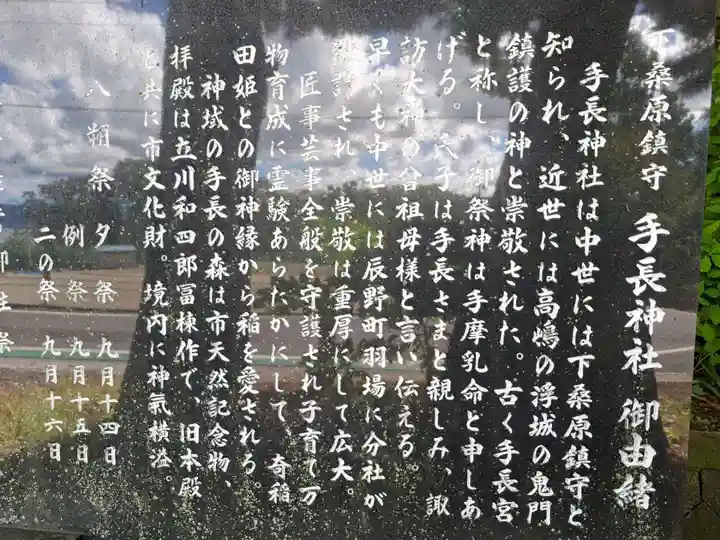 下桑原鎮守 手長神社 御由緒
手長神社は中世には下桑原鎮守と
知られ、近世には高嶋の浮城の鬼門
鎮護の神と崇敬された。古く手長宮
と称し、御祭神は手摩乳命と申しあ
げる。氏子は手長さまと親しみ、諏
訪大神の曾祖母様と言い伝える。
早くも中世には辰野町羽場に分社が
勧請され、崇敬は重厚にして広大。
匠事芸事全般を守護され子育て万
物育成に霊験あらたかにして、奇稲
田姫との御神縁から稲を愛される。
神域の手長の森は市天然記念物、
拝殿は立川和四郎冨棟作で、旧本殿
と共に市文化財。境内に神氣横溢。
八朔祭 夕祭 九月十四日
例祭 九月十五日
二の祭 九月十六日